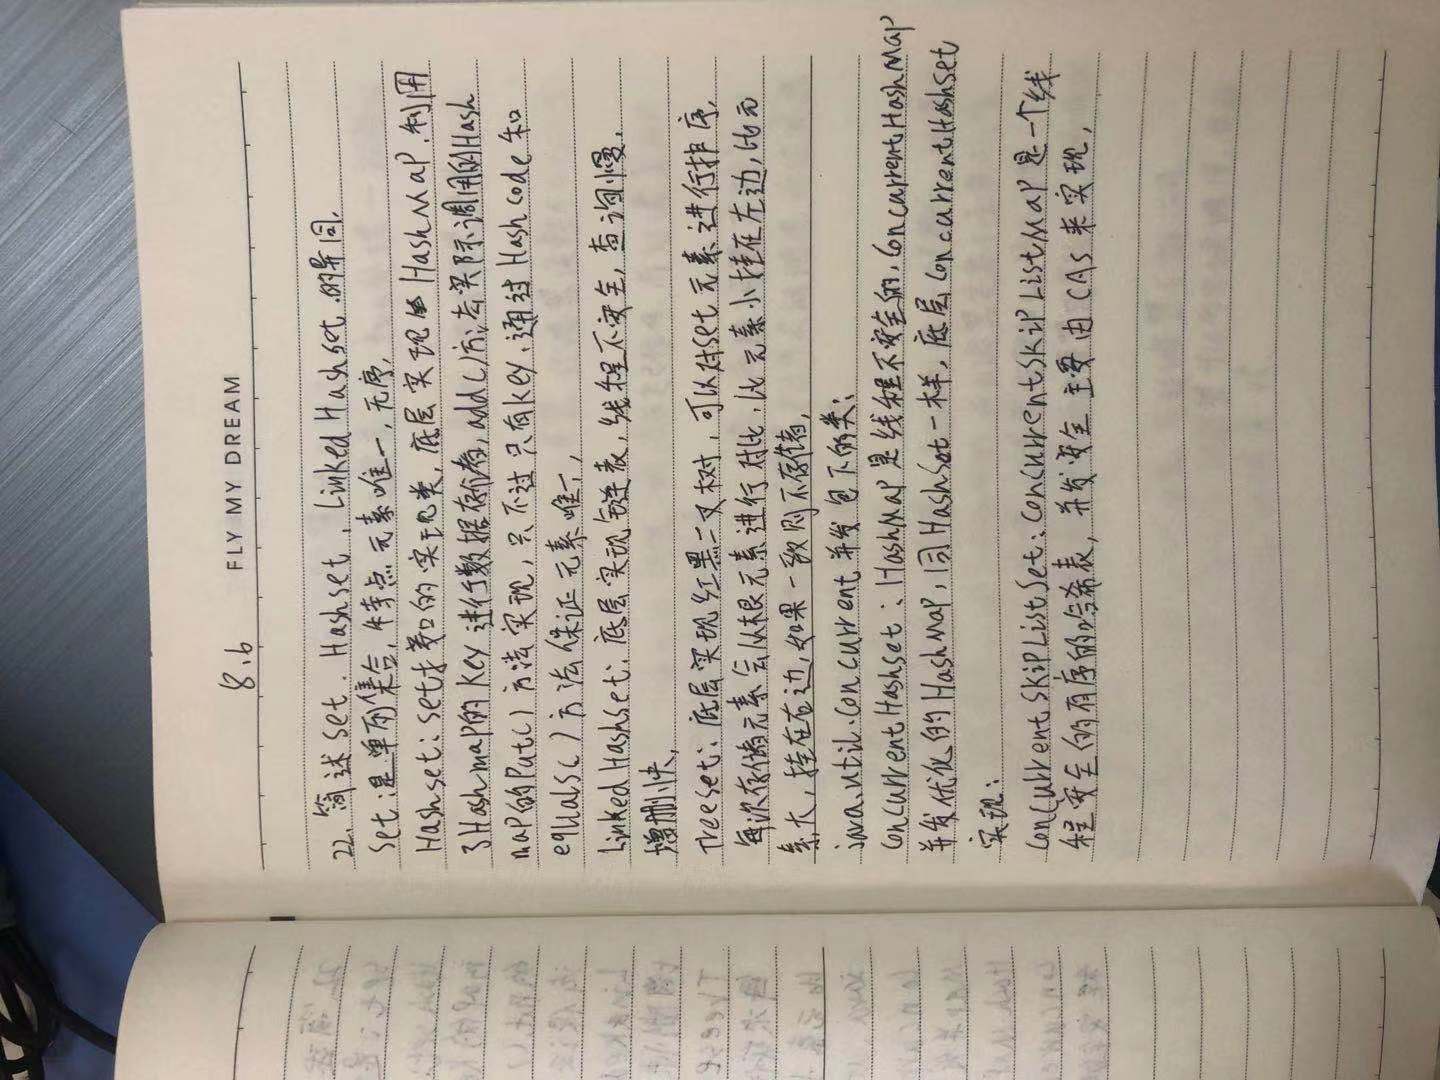 FLY MY DREAM
8.6
22.简述Set、Hashset、LinkedHashset.的异同.
Set:是单列集合,特点元素唯一,无序,
Hashset:Set接口的实现类,底层实现是HashMap.利用
了Hashmap的Key进行数据存储,add()方法实际调用的Hash
map的Put()方法实现,只不过只有key,通过Hashcode和
equals()方法保证元素唯一,
LinkedHashset:底层实现链表,线程不安全,查询慢,
增删快,
Treeset:底层实现红黑二叉树,可以对Set元素进行排序,
每次存储元素会从根元素进行对比,比元素小挂在左边,比元
素大,挂在右边,如果一致则不存储,
java.util.concurrent并发包下的类:
ConcurrentHashset:HashMap是线程不安全的,ConcurrentHashMap
并发优化的HashMap,同HashSet一样,底层ConcurrentHashset
实现:
ConcurrentSkipListSet:ConcurrentSkipListMap是一个线
程安全的有序的哈希表,并发安全主要由CAS来实现,